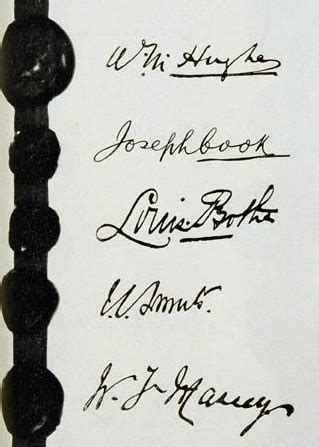 W. M. Hughes
Joseph Cook
Louis Botha
J. C. Smuts.
W. F. Massey